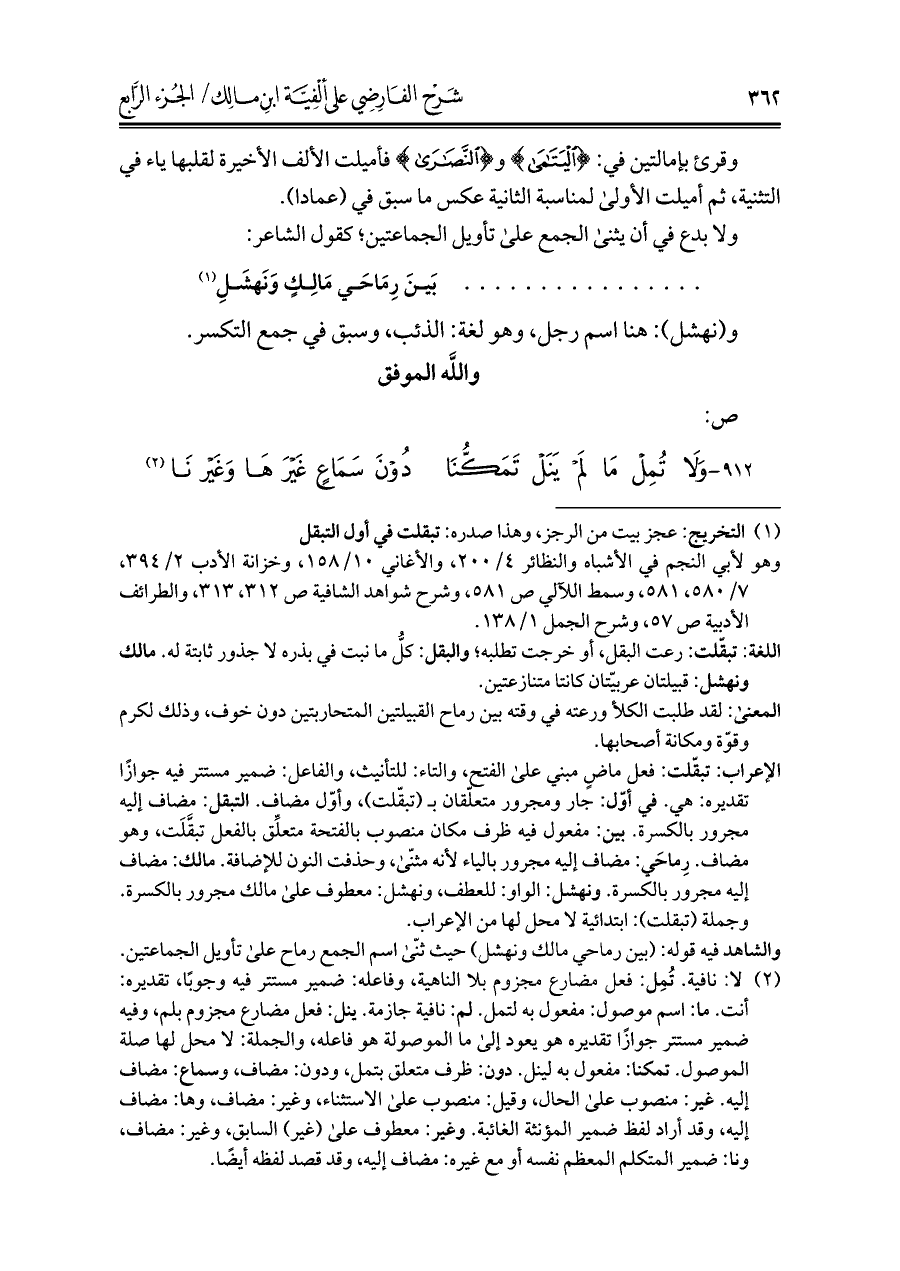 ٣٦٢ شرح الفارضي على ألفية ابن مالك/ الجزء الرابع
وقرئ بإمالتين في: ﴿ٱلۡيَتَٰمَىٰ﴾ و﴿ٱلنَّصَٰرَىٰ﴾ فأميلت الألف الأخيرة لقلبها ياء في
التثنية، ثم أميلت الأولىٰ لمناسبة الثانية عكس ما سبق في (عمادا).
ولا بدع في أن يثنىٰ الجمع علىٰ تأويل الجماعتين؛ كقول الشاعر:
. . . . . . . . . . . . . . . . بَيـنَ رِمَاحَـي مَالِـكٍ وَنَهشَـلِ(١)
و(نهشل): هنا اسم رجل، وهو لغة: الذئب، وسبق في جمع التكسر.
واللَّه الموفق
ص:
٩١٢-وَلَا تُمِلْ مَا لَمْ يَنَلْ تَمَكُّنَا دُوْنَ سَمَاعٍ غَيْرَ هَـا وَغَيْرَ نَـا (٢)
(١) التخريج: عجز بيت من الرجز، وهذا صدره: تبقلت في أول التبقل
وهو لأبي النجم في الأشباه والنظائر ٤/ ٢٠٠، والأغاني ١٠/ ١٥٨، وخزانة الأدب ٢/ ٣٩٤،
٧/ ٥٨٠، ٥٨١، وسمط اللآلي ص ٥٨١، وشرح شواهد الشافية ص ٣١٢، ٣١٣، والطرائف
الأدبية ص ٥٧، وشرح الجمل ١/ ١٣٨.
اللغة: تبقّلت: رعت البقل، أو خرجت تطلبه؛ والبقل: كلُّ ما نبت في بذره لا جذور ثابتة له. مالك
ونهشل: قبيلتان عربيّتان كانتا متنازعتين.
المعنىٰ: لقد طلبت الكلأ ورعته في وقته بين رماح القبيلتين المتحاربتين دون خوف، وذلك لكرم
وقوّة ومكانة أصحابها.
الإعراب: تبقّلت: فعل ماضٍ مبني علىٰ الفتح، والتاء: للتأنيث، والفاعل: ضمير مستتر فيه جوازًا
تقديره: هي. في أوّل: جار ومجرور متعلّقان بـ (تبقّلت)، وأوّل مضاف. التبقل: مضاف إليه
مجرور بالكسرة. بين: مفعول فيه ظرف مكان منصوب بالفتحة متعلِّق بالفعل تبقَّلَت، وهو
مضاف. رِماحَي: مضاف إليه مجرور بالياء لأنه مثنّىٰ، وحذفت النون للإضافة. مالك: مضاف
إليه مجرور بالكسرة. ونهشل: الواو: للعطف، ونهشل: معطوف علىٰ مالك مجرور بالكسرة.
وجملة (تبقلت): ابتدائية لا محل لها من الإعراب.
والشاهد فيه قوله: (بين رماحي مالك ونهشل) حيث ثنّىٰ اسم الجمع رماح علىٰ تأويل الجماعتين.
(٢) لا: نافية. تُمِل: فعل مضارع مجزوم بلا الناهية، وفاعله: ضمير مستتر فيه وجوبًا، تقديره:
أنت. ما: اسم موصول: مفعول به لتمل. لم: نافية جازمة. ينل: فعل مضارع مجزوم بلم، وفيه
ضمير مستتر جوازًا تقديره هو يعود إلىٰ ما الموصولة هو فاعله، والجملة: لا محل لها صلة
الموصول. تمكنا: مفعول به لينل. دون: ظرف متعلق بتمل، ودون: مضاف، وسماع: مضاف
إليه. غير: منصوب علىٰ الحال، وقيل: منصوب علىٰ الاستثناء، وغير: مضاف، وها: مضاف
إليه، وقد أراد لفظ ضمير المؤنثة الغائبة. وغير: معطوف علىٰ (غير) السابق، وغير: مضاف،
ونا: ضمير المتكلم المعظم نفسه أو مع غيره: مضاف إليه، وقد قصد لفظه أيضًا.